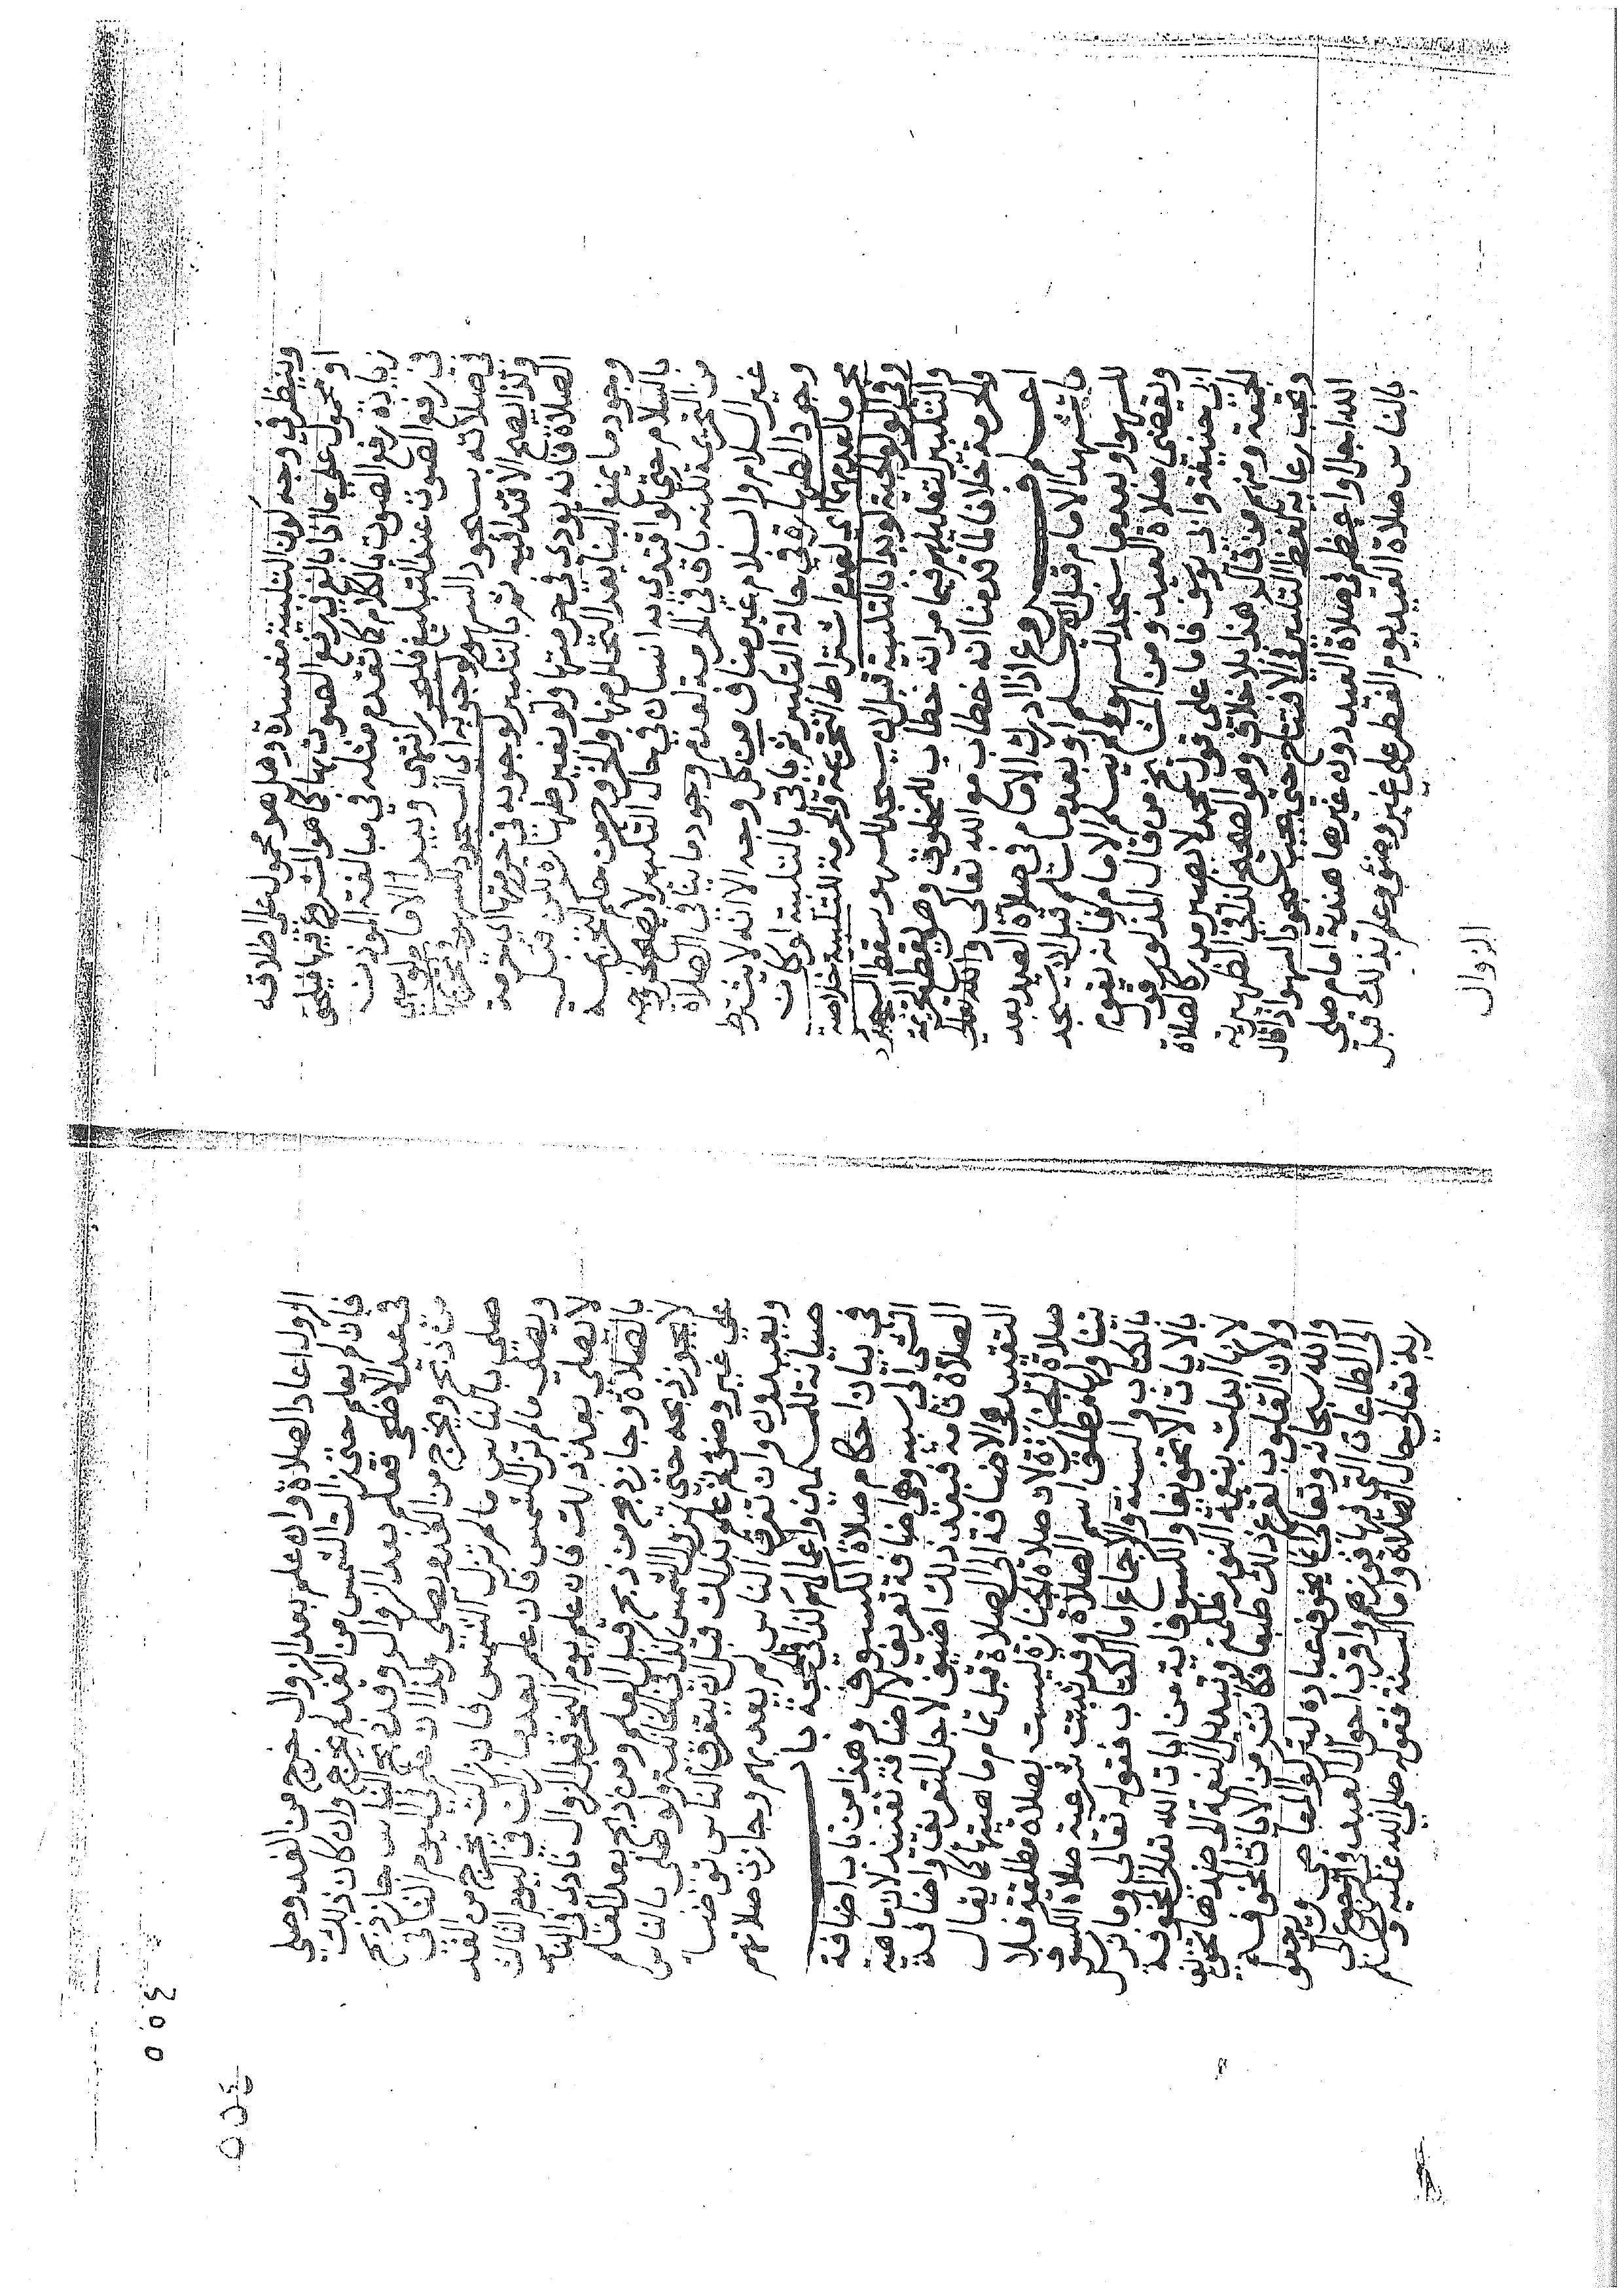 وينظر في وجه كون التلبية مفسدة وهل هو محمول على اطلاقه
او محمول على ما اذا بالغ في رفع الصوت بها كما هو المشروع فيها فيلحق
زيادة رفع الصوت بالكلام كما تقدم مثله في مبالغة الموذن
في رفع الصوت عند التبليغ فليحرر انتهى ويبدا الامام لو سهى
في صلاته بسجود السهو لوجوبه اي السجود للسهو في تحريمتها
ولذا يصح الاقتدا فيه ثم بالتكبير لوجوبه في حرمتها اي حرمة
الصلاة فانه يودى في حرمتها ولو بغير طهارة لكن قبل
وجود ما يمنع البنا بعد التحلل منها والخروج من حكم التحريمة
بالسلام حتى لو اقتدى به انسان في حال التكبير لا يصح لخروجه
من التحريمة لكنه باق في الحرمة لعدم وجود ما ينافي الصلاة
غير السلام والسلام غير مناف من كل وجه الا انه لا يشترط
وجود الطهارة في حالة التكبير ثم ياتي بالتلبية لو كان
محرما لعدمهما اي لعدم اشتراط التحريمة والحرمة للتلبية خلاصة
وفي الولوالجية لو بدا بالتلبية قبل ان يسجد للسهو سقط السجود
والتكبير لتعليلهم فيما مر انه خطاب للمخلوق وهو يقطع التحريمة
والحرمة خلافا لما قدمنا انه خطاب مع الله تعالى والله تعالى
اعلم فروع اذا ادرك الامام في صلاة العيد بعد
ما تشهد الامام قبل ان يسلم او بعدما سلم قبل ان يسجد
للسهو او بعدما سجد للسهو ولم يسلم الامام فانه يقوم
ويقضي صلاة العيد ومن المشايخ من قال المذكور قول
ابي حنيفة وابي يوسف فاما على قول محمد لا يصير مدركا لصلاة
الجمعة ومنهم من قال هذا بلا خلاف وهو الصحيح كذا في الظهيرية
وتجب رعاية لفظ التكبير في الافتتاح حتى يجب سجود السهو اذا قال
الله اجل او اعظم في صلاة العيد دون غيرها هندية امام صلى
بالناس صلاة العيد يوم الفطر على غير وضوء وعلم بذلك قبل
الزوال
الزوال اعاد الصلاة وان علم بعد الزوال خرج من الغد وصلى
فان لم يعلم حتى زالت الشمس من الغد لم يخرج وان كان ذلك
في عيد الاضحى فعلم بعد الزوال وقد ذبح الناس جاز ذبح
من ذبح ويخرج من الغد ويصلي وكذا ان علم في اليوم الثاني
صلى بالناس ما لم تزل الشمس فان زالت يخرج من الغد
ويصلي ما لم تزل الشمس فان علم بعدما زالت في اليوم الثالث
لا يصلي بعد ذلك فان علم يوم النحر قبل الزوال نادى في الناس
بالصلاة وجاز ذبح من ذبح قبل العلم ومن ذبح بعد العلم
لا يجوز ذبحه حتى تزول الشمس كذا في الخانية ولو صلى بالناس
على غير وضوء ثم علم بذلك قبل ان يتفرق الناس توضا
ويعيدون وان تفرق الناس لم يعد بهم وجازت صلاتهم
صيانة للمسلمين واعمالهم باب
في بيان احكام صلاة الكسوف وهذا من باب اضافة
الشي الى سببه وهي اضافة تعريف لا اضافة تقييد لان ماهية
الصلاة تامة فبعد ذلك اضيف لاجل التعريف واضافة
التقييد هي الاضافة الى الصلاة قبل تمام ماهيتها كما يقال
صلاة الجنازة لان صلاة الجنازة ليست بصلاة مطلقة فلا
يتناولها مطلق اسم الصلاة وقد ثبت شرعية صلاة الكسوف
بالكتاب والسنة والاجماع اما الكتاب فقوله تعالى وما نرسل
بالايات الا تخويفا والكسوف اية من ايات الله تعالى المخوفة
لانها ابدلت نعمة النور ظلمة وتبديل النعمة الى ضدها تخويف
ولان القلوب تفزع ذلك طبعا فكانت من الايات المخوفة
والله سبحانه وتعالى يخوف عباده ليتركوا المعاصي ويرجعوا
الى الطاعات التي فيها فوزهم واقرب احوال العبد في الرجوع الى
ربه تعالى حال الصلاة واما السنة فقوله صلى الله عليه وسلم